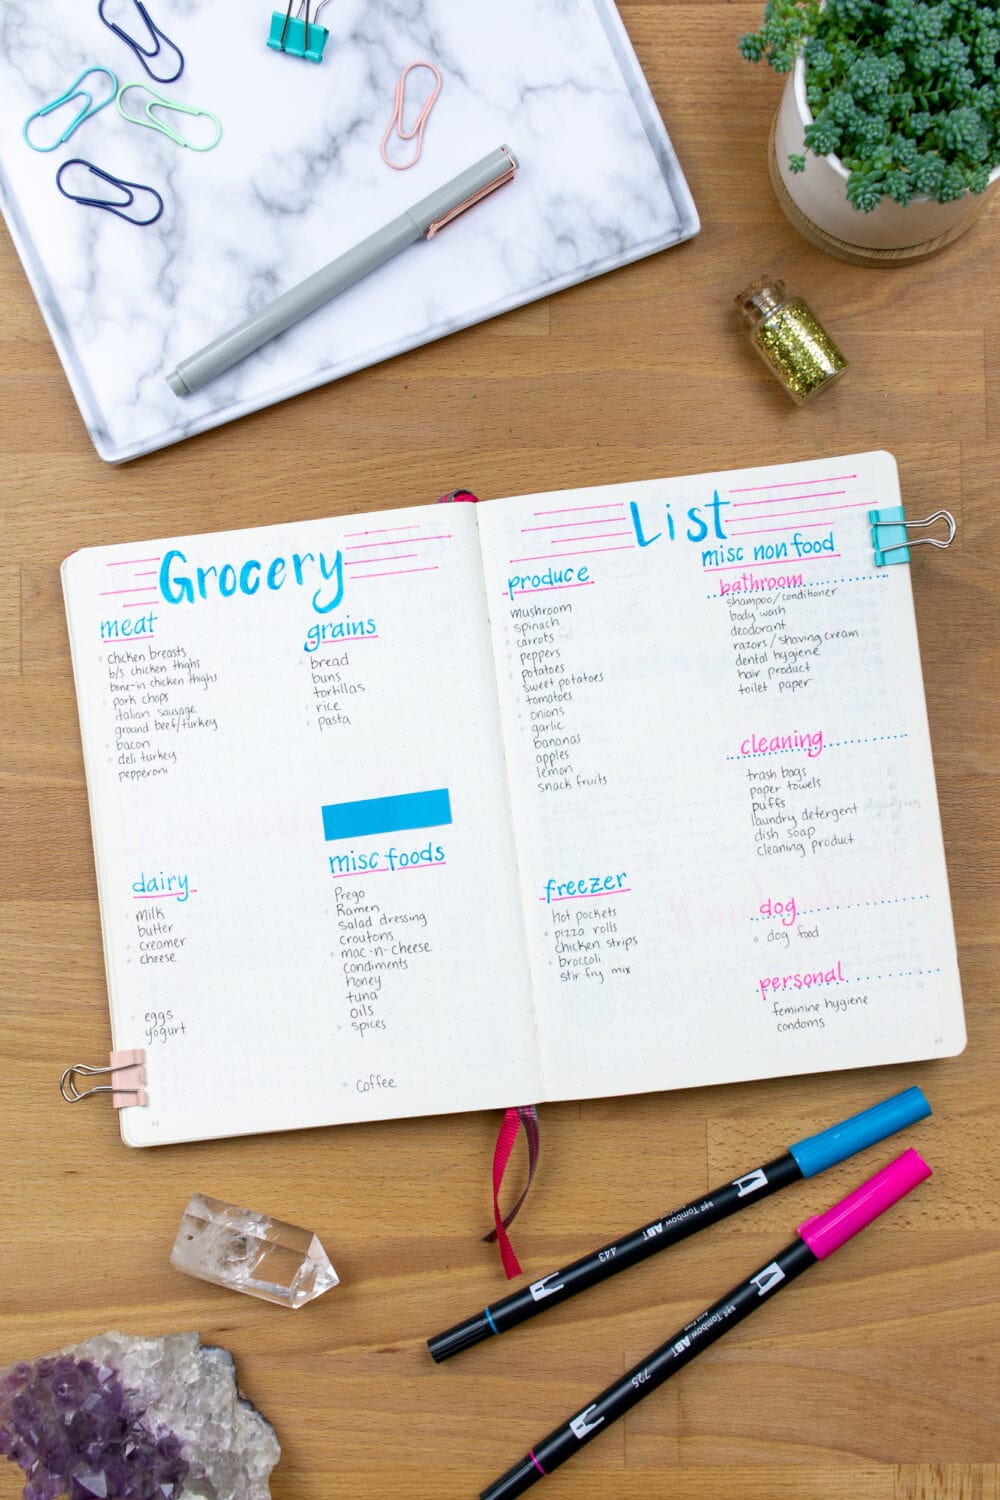 Grocery
meat
chicken breasts
b/s chicken thighs
bone-in chicken thighs
pork chops
italian sausage
ground beef/turkey
bacon
deli turkey
pepperoni
grains
bread
buns
tortillas
rice
pasta
dairy
milk
butter
creamer
cheese
eggs
yogurt
misc foods
Prego
Ramen
Salad dressing
croutons
mac-n-cheese
condiments
honey
tuna
oils
spices
Coffee
64
List
produce
mushroom
spinach
carrots
peppers
potatoes
sweet potatoes
tomatoes
onions
garlic
bananas
apples
lemon
snack fruits
freezer
hot pockets
pizza rolls
chicken strips
broccoli
stir fry mix
misc non food
bathroom
shampoo/conditioner
body wash
deodorant
razors/shaving cream
dental hygiene
hair product
toilet paper
cleaning
trash bags
paper towels
puffs
laundry detergent
dish soap
cleaning product
dog
dog food
personal
feminine hygiene
condoms
65
Tombow ABT
443
Tombow ABT
725